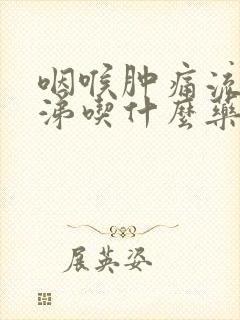 咽喉肿痛流
涕喫什麼藥
展英姿